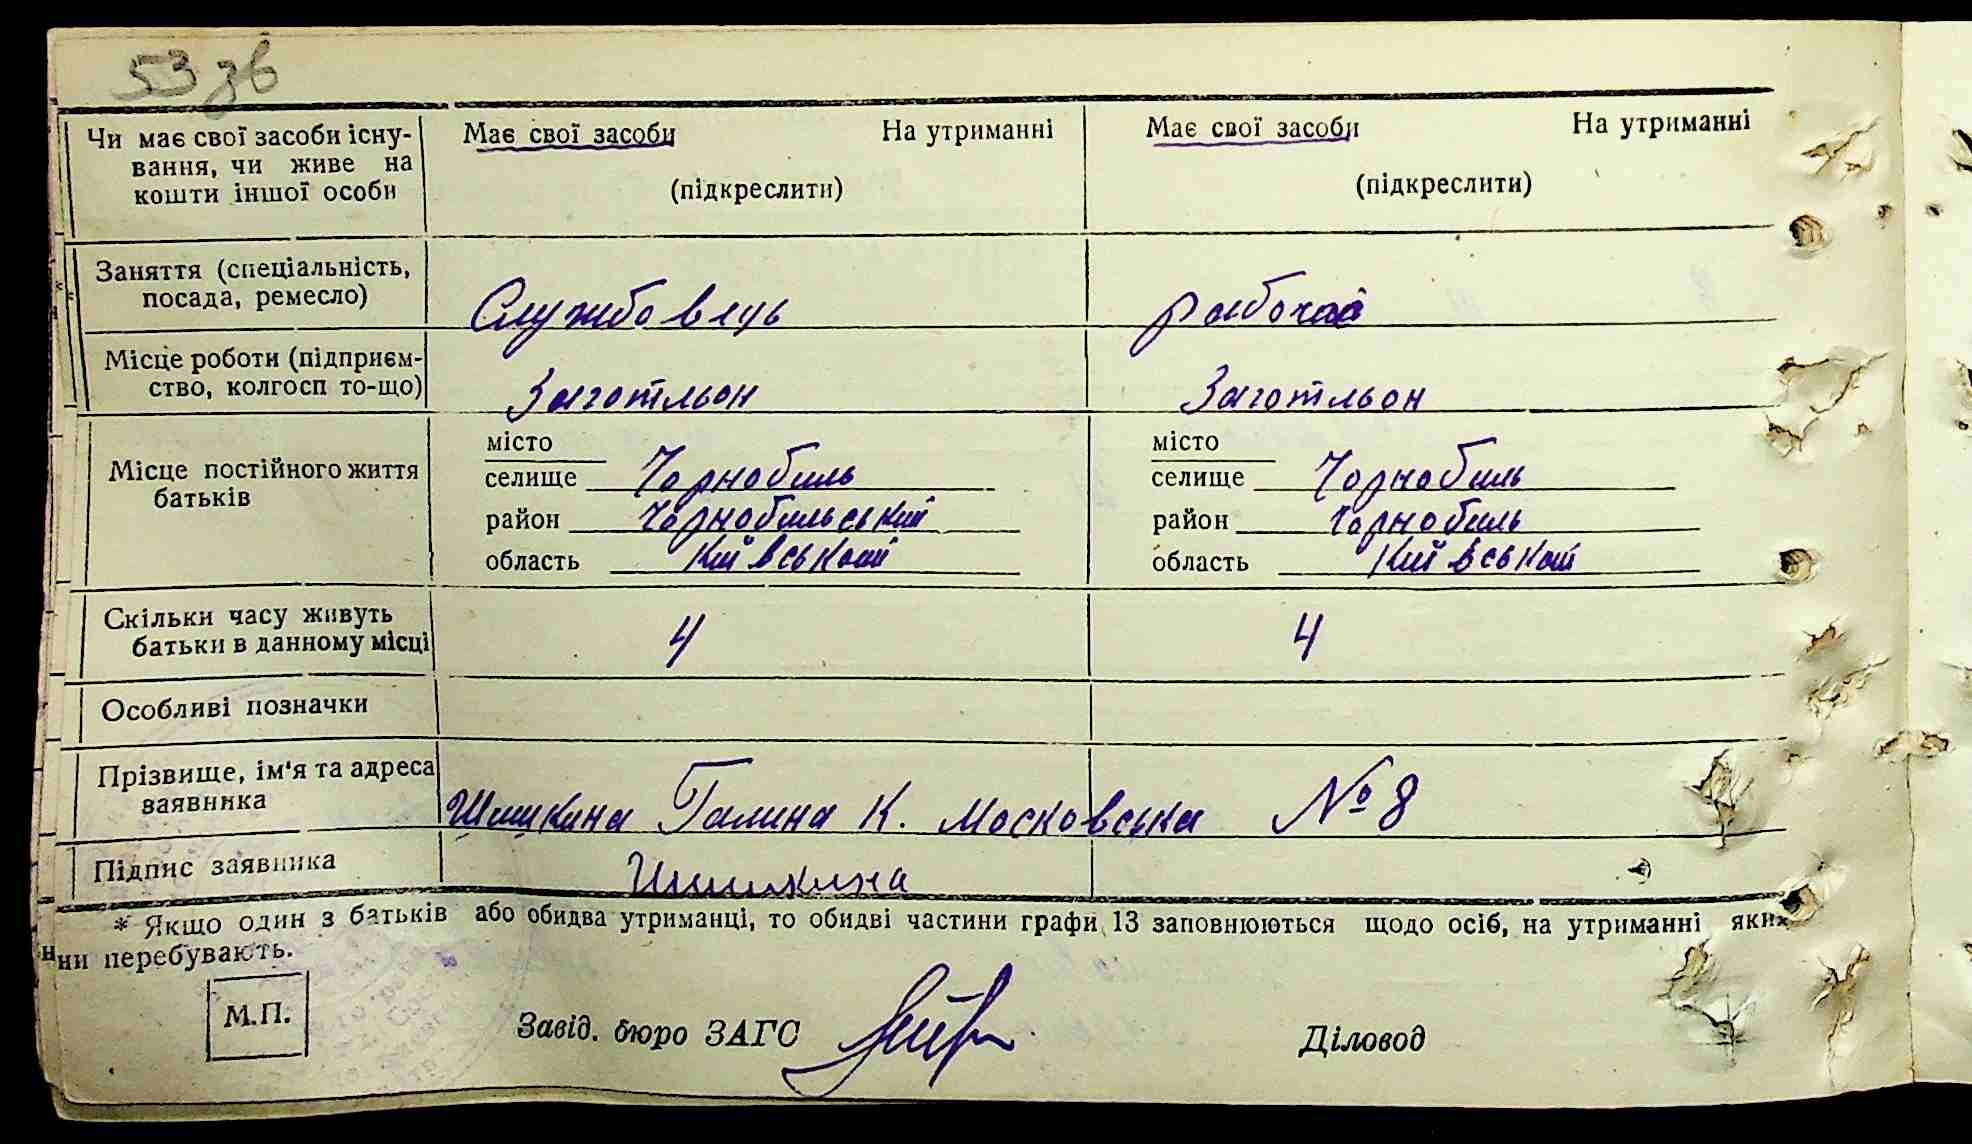 53 зв
Чи має свої засоби існу-
вання, чи живе на
кошти іншої особи
Має свої засоби На утриманні
(підкреслити)
Має свої засоби На утриманні
(підкреслити)
Заняття (спеціальність,
посада, ремесло)
Службовець
рабочий
Місце роботи (підприєм-
ство, колгосп то-що)
Заготльон
Заготльон
Місце постійного життя
батьків
місто
селище Чорнобиль
район Чорнобильський
область Київський
місто
селище Чорнобиль
район Чорнобиль
область Київський
Скільки часу живуть
батьки в данному місці
4
4
Особливі позначки
Прізвище, ім'я та адреса
заявника
Шишкина Галина К. Московська № 8
Підпис заявника
Шишкина
* Якщо один з батьків або обидва утриманці, то обидві частини графи 13 заповнюються щодо осіб, на утриманні яких
ни перебувають.
М.П.
Завід. бюро ЗАГС
Діловод